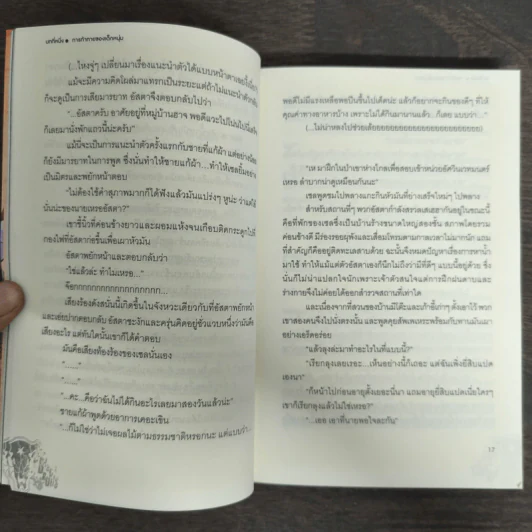 บทที่หนึ่ง ● การท้าทายของเด็กหนุ่ม
(...ไหงจู่ๆ เปลี่ยนมาเรื่องแนะนำตัวได้แบบหน้าตาเฉย
แม้จะมีความคิดโผล่มาแทรกเป็นระยะแต่ถ้าไม่แนะนำตัว
ก็จะดูเป็นการเสียมารยาท อัสตาจึงตอบกลับไปว่า
"อัสตาครับ อาศัยอยู่ที่หมู่บ้านฮาจ พอดีแวะไปใน
ก็เลยมานั่งพักแถวนี้น่ะครับ"
แม้นี่จะเป็นการแนะนำตัวครั้งแรกกับชายที่แก้ผ้า แต่อย่าง
ก็ยังมีมารยาทในการพูด ซึ่งนั่นทำให้ชายแก้ผ้า...ทำให้เซลยิ้ม
เป็นมิตรและพยักหน้าตอบ
"ไม่ต้องใช้คำสุภาพมากก็ได้ฟังแล้วมันแปร่งๆ หูน่ะ ว่าแต่
นั่นน่ะของนายเหรออัสตา?"
เขาชี้นิ้วที่ค่อนข้างยาวและผอมแห้งจนเกือบติดกระดูกไป
กองไฟที่อัสตาก่อขึ้นเพื่อเผาหัวมัน
อัสตาพยักหน้าและตอบกลับว่า
"ใช่แล้วล่ะ ทำไมเหรอ..."
เสียงร้องดังสนั่นนี้เกิดขึ้นในจังหวะเดียวกับที่อัสตาพยักหน้า
และเอ่ยปากตอบกลับ อัสตาชะงักและครุ่นคิดอยู่ชั่วแวบหนึ่งว่า
เสียงอะไร แต่ทันใดนั้นเขาก็ได้คำตอบ
มันคือเสียงท้องร้องของเซลนั่นเอง
"......"
"......"
"...คะ...คือว่าฉันไม่ได้กินอะไรเลยมาสองวันแล้วน่ะ"
ชายแก้ผ้าพูดด้วยอาการเคอะเขิน
"...ก็ไม่ใช่ว่าไม่เจอผลไม้ตามธรรมชาติหรอกนะ แต่แบบว่า...
พอดีไม่มีแรงเหลือพอปีนขึ้นไปเด็ดน่ะ แล้วก็อยากจะกินของดีๆ ที่ให้
คุณค่าทางอาหารบ้าง เพราะไม่ได้กินมานานแล้ว ก็เลย แบบว่า..."
"เห มาฝึกในป่าเขาห่างไกลเพื่อสอบเข้าหน่วยอัศวินเวทมนตร์
เหรอ ลำบากน่าดูเหมือนกันนะ"
เซลพูดชมไปพลางแกะกินหัวมันที่ย่างเสร็จใหม่ๆ ไปพลาง
สำหรับสถานที่ๆ พวกอัสตากำลังสรวลเสเฮฮากันอยู่ในขณะนี้
คือที่พักของเซลซึ่งเป็นบ้านร้างขนาดใหญ่สองชั้น สภาพโดยรวม
ค่อนข้างดี มีร่องรอยผุพังและเสื่อมโทรมตามกาลเวลาไม่มากนัก แถม
ที่สำคัญก็คืออยู่ติดทะเลสาบด้วย ฉะนั้นจึงหมดปัญหาเรื่องการหาน้ำ
มาใช้ ทำให้แม้แต่ตัวอัสตาเองก็นึกไม่ถึงว่ามีที่ดีๆ แบบนี้อยู่ด้วย ซึ่ง
นั่นก็ไม่น่าแปลกใจนักเพราะเจ้าตัวสนใจแต่การฝึกฝนดาบและ
ร่างกายจึงไม่ค่อยได้ออกสำรวจสถานที่เท่าใด
และเนื่องจากที่สวนของบ้านมีโต๊ะและเก้าอี้เก่าๆ ตั้งเอาไว้ พวก
เขาสองคนจึงไปนั่งตรงนั้น และพูดคุยสัพเพเหระพร้อมกับทานมันเผา
อย่างเอร็ดอร่อย
"แล้วลุงล่ะมาทำอะไรในที่แบบนี้?"
"เรียกลุงเลยเรอะ...เห็นอย่างนี้ก็เถอะ แต่ฉันเพิ่งยี่สิบแปด
เองนา"
"ก็หน้าไปก่อนอายุตั้งเยอะนี่นา แถมอายุยี่สิบแปดเนี่ยใครๆ
เขาก็เรียกลุงแล้วไม่ใช่เหรอ?"
"...เออ เอาที่นายพอใจละกัน"
17